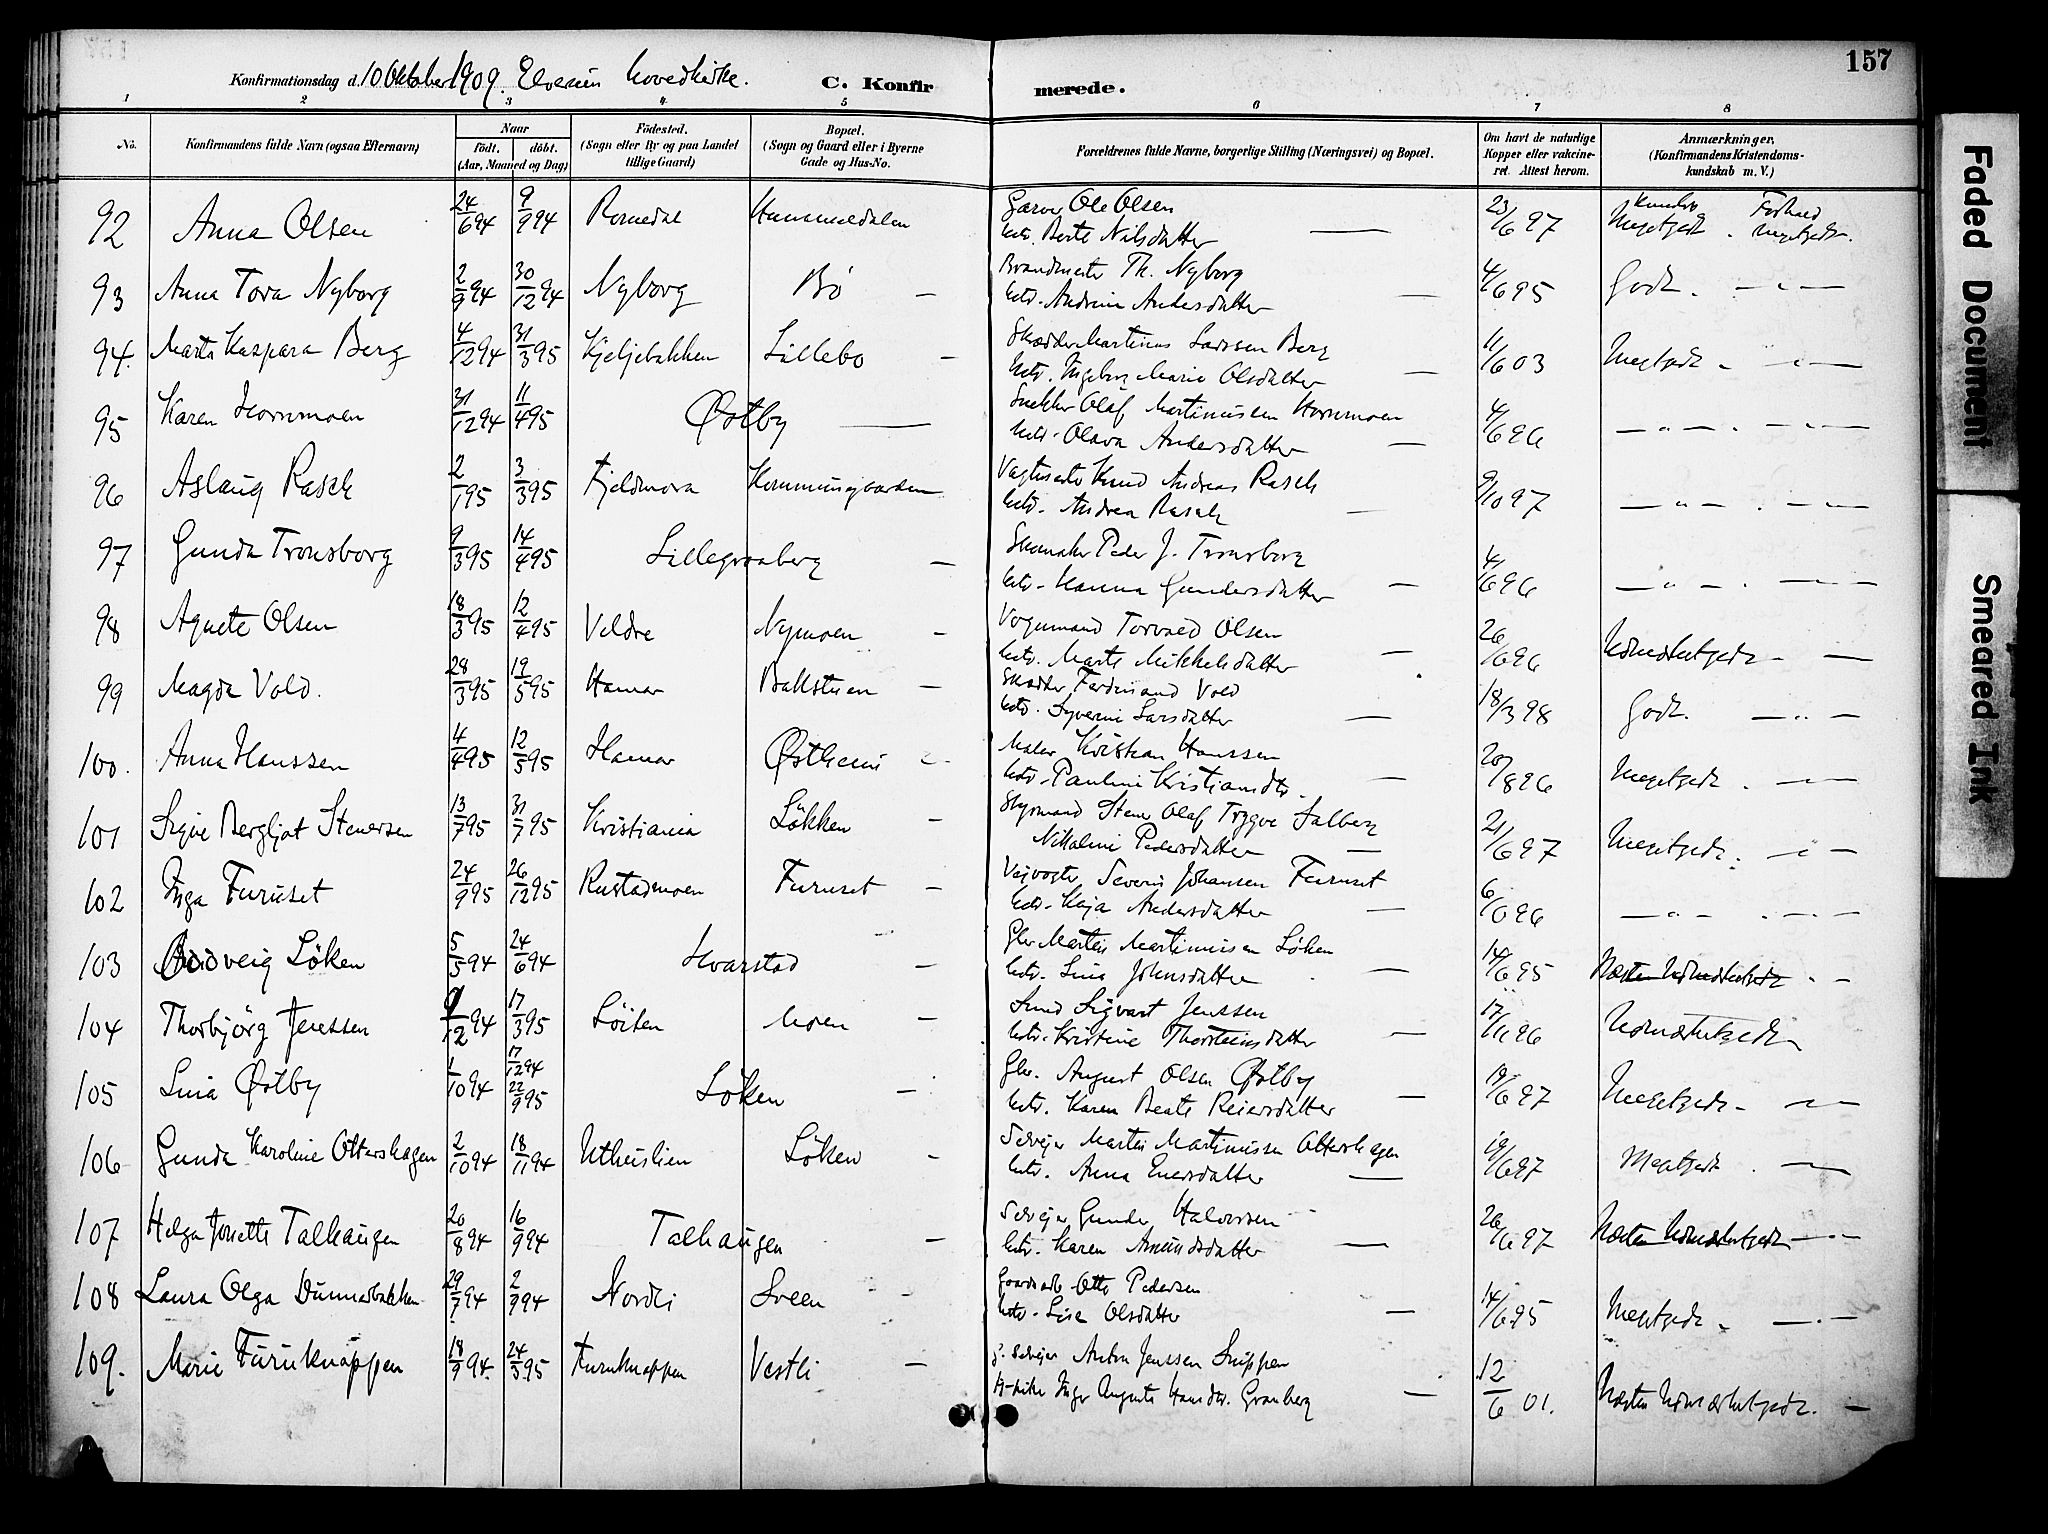 157
Konfirmationsdag d. 10 Oktober 1909. Elverum hovedkirke. C. Konfirmerede.
1 2 3 4 5 6 7 8
No. Konfirmandens fulde Navn (ogsaa Efternavn) Naar födt. döbt. (Aar, Maaned og Dag) Födested. (Sogn eller By og paa Landet tillige Gaard) Bopæl. (Sogn og Gaard eller i Byerne Gade og Hus-No.) Forældrenes fulde Navne, borgerlige Stilling (Næringsvei) og Bopæl. Om havt de naturlige Kopper eller vakcineret. Attest herom. Anmærkninger. (Konfirmandens Kristendomskundskab m. V.)
92 Anna Olsen 24/6 94 9/9 94 Romedal Hummeldalen Garver Ole Olsen 23/6 97 Kundsk. Forhold
htr. Berte Nilsdatter — Megetgodt. Megetgodt.
93 Anna Tora Nyborg 2/9 94 30/12 94 Nyborg Bö — Brandmester Th. Nyborg 4/6 95 Godt. — " —
htr. Andrine Andersdatter —
94. Marte Kaspara Berg 4/12 94 31/3 95 Kjeljebakken Lillebo — Skrædder Martinus Larssen Berg 11/6 03 Megetgodt. — " —
htr. Ingeborg Marie Olsdatter —
95 Karen Hornmoen 31/12 94 11/4 95 Østby — Snekker Olaf Martinussen Hornmoen 4/6 96 — " — . — " —
htr. Olava Andersdatter —
96 Aslaug Rasch 2/1 95 3/3 95 Fjeldmora Kommunegaarden Vagtmester Knud Andreas Rasch 9/10 97 — " — . — " —
htr. Andrea Rasch —
97 Gunda Tronsborg 9/3 95 14/4 95 Lillegraaberg — Skomaker Peder J. Tronsborg 4/6 96 — " — . — " —
htr. Hanna Gundersdatter —
98 Agnete Olsen 18/3 95 12/4 95 Veldre Nymoen — Vognmand Torvald Olsen 26/6 96 Udmærketgodt. —
htr. Marte Mikkelsdatter —
99 Magda Vold. 28/3 95 19/5 95 Hamar Bakstuen — Skrædder Ferdinand Vold 18/3 98 Godt. — " —
htr. Syverine Larsdatter —
100. Anna Hanssen 4/4 95 12/5 95 Hamar Østheim Maler Kristian Hanssen 20/8 96 Megetgodt. — " —
htr. Pauline Kristiansdtr. —
101 Signe Bergljot Stenersen 13/7 95 31/7 95 Kristiania Løkken — Styrmand Stener Olaf Trygve Salberg 21/6 97 Megetgodt. — " —
Nikoline Pedersdatter —
102 Inga Furuset 24/9 95 26/12 95 Rustadmoen Furuset — Veivogter Severin Johansen Furuset 6/6 96 — " — . — " —
htr. Kaja Andersdatter —
103 Oddveig Löken 5/5 94 24/6 94 Hvarstad — Gbr Martin Martinussen Löken 14/6 95 Næsten Udmærketgodt . —
htr. Lina Johnsdatter —
104 Thorbjörg Jenssen 9/12 94 17/3 95 Löiten Moen — Smed Sigvart Jenssen 17/11 96 Udmærketgodt
htr. Kristine Thorsteinsdatter —
105 Lina Østby 1/10 94 17/12 94 22/9 95 Löken — Gbr. August Olsen Østby 19/6 97 Megetgodt. — " —
htr. Karen Beate Reiersdatter —
106 Gunda Karoline Ottershagen 2/10 94 18/11 94 Utheislien Löken — Selveier Martin Martinussen Ottershagen 19/6 97 Megetgodt . — " —
htr. Anna Enersdatter —
107 Helga Josette Talhaugen 20/8 94 16/9 94 Talhaugen — Selveier Gunder Halvorsen 26/6 97 Næsten Udmærketgodt — . —
htr. Karen Amundsdatter —
108 Laura Olga Dunnarbakken 29/7 94 2/9 94 Nordli Sveen Gaardarb. Otto Pedersen 14/6 95 Megetgodt. — . —
htr. Lise Olsdatter —
109. Marie Furuknappen 18/9 94. 24/3 95 Furuknappen Vestli — g. Selveier Anton Jenssen Snippen 12/6 01. Næsten Udmærketgodt. —
Pike Inger Auguste Hansdtr. Granberg —
Faded Document
Smeared Ink